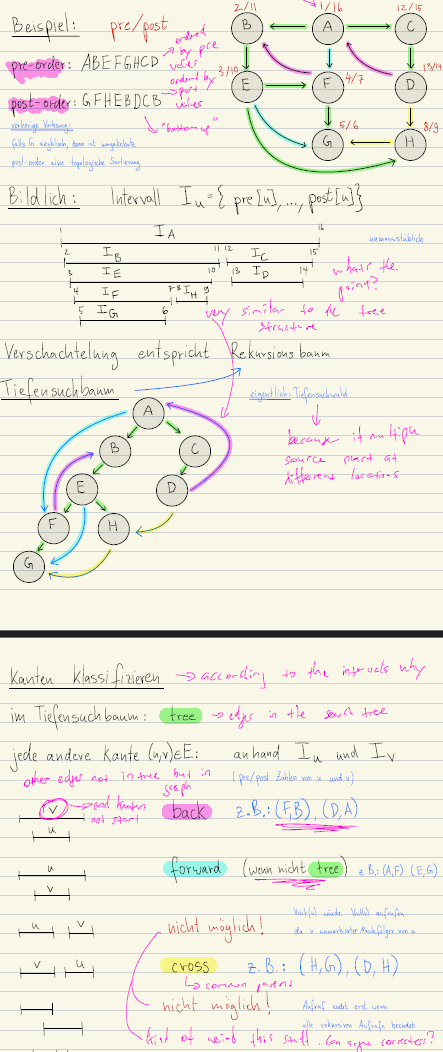 Beispiel: pre/post
ordered by pre values
pre-order: ABEFGHCD
ordered by post values
post-order: GFHEBDCB
"bottom up"
vorherige Vorlesung:
falls G azyklisch, dann ist umgekehrte
post-order eine topologische Sortierung
2/11 1/16 12/15
B A C
3/10 4/7 13/14
E F D
5/6 8/9
G H
Bildlich: Intervall I_u = { pre[u], ..., post[u] }
1 I_A 16
unmassstäblich
2 I_B 11 12 I_C 15
3 I_E 10 13 I_D 14
what's the point?
4 I_F 7 8 I_H 9
5 I_G 6
very similar to the tree structure
Verschachtelung entspricht Rekursionsbaum
Tiefensuchbaum
eigentlich: Tiefensuchwald
because if multiple
source start at
different locations
A
B C
E D
F H
G
Kanten klassifizieren → according to the intervals why
im Tiefensuchbaum: tree → edges in the search tree
jede andere Kante (u,v)∈E: anhand I_u und I_v
other edges not in tree but in graph
(pre/post Zahlen von u und v)
v → end Knoten not start
u
back z.B.: (F,B), (D,A)
u
v
forward (wenn nicht tree) z.B.: (A,F) (E,G)
u v
nicht möglich!
Visit(u) würde Visit(v) aufrufen
da v unmarkierter Nachfolger von u
v u
cross z.B.: (H,G), (D,H)
↳ common parent
nicht möglich!
Aufruf endet erst wenn
alle rekursiven Aufrufe beendet
kind of weird this stuff. Can argue correctness?